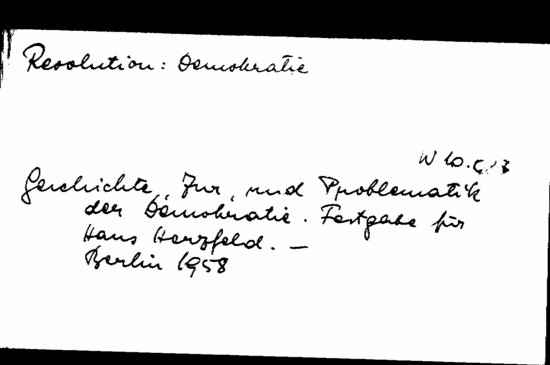 Revolution: Demokratie
W 10.
Geschichte, Zur, und Problematik
der Demokratie. Festgabe für
Hans Herzfeld. —
Berlin 1958